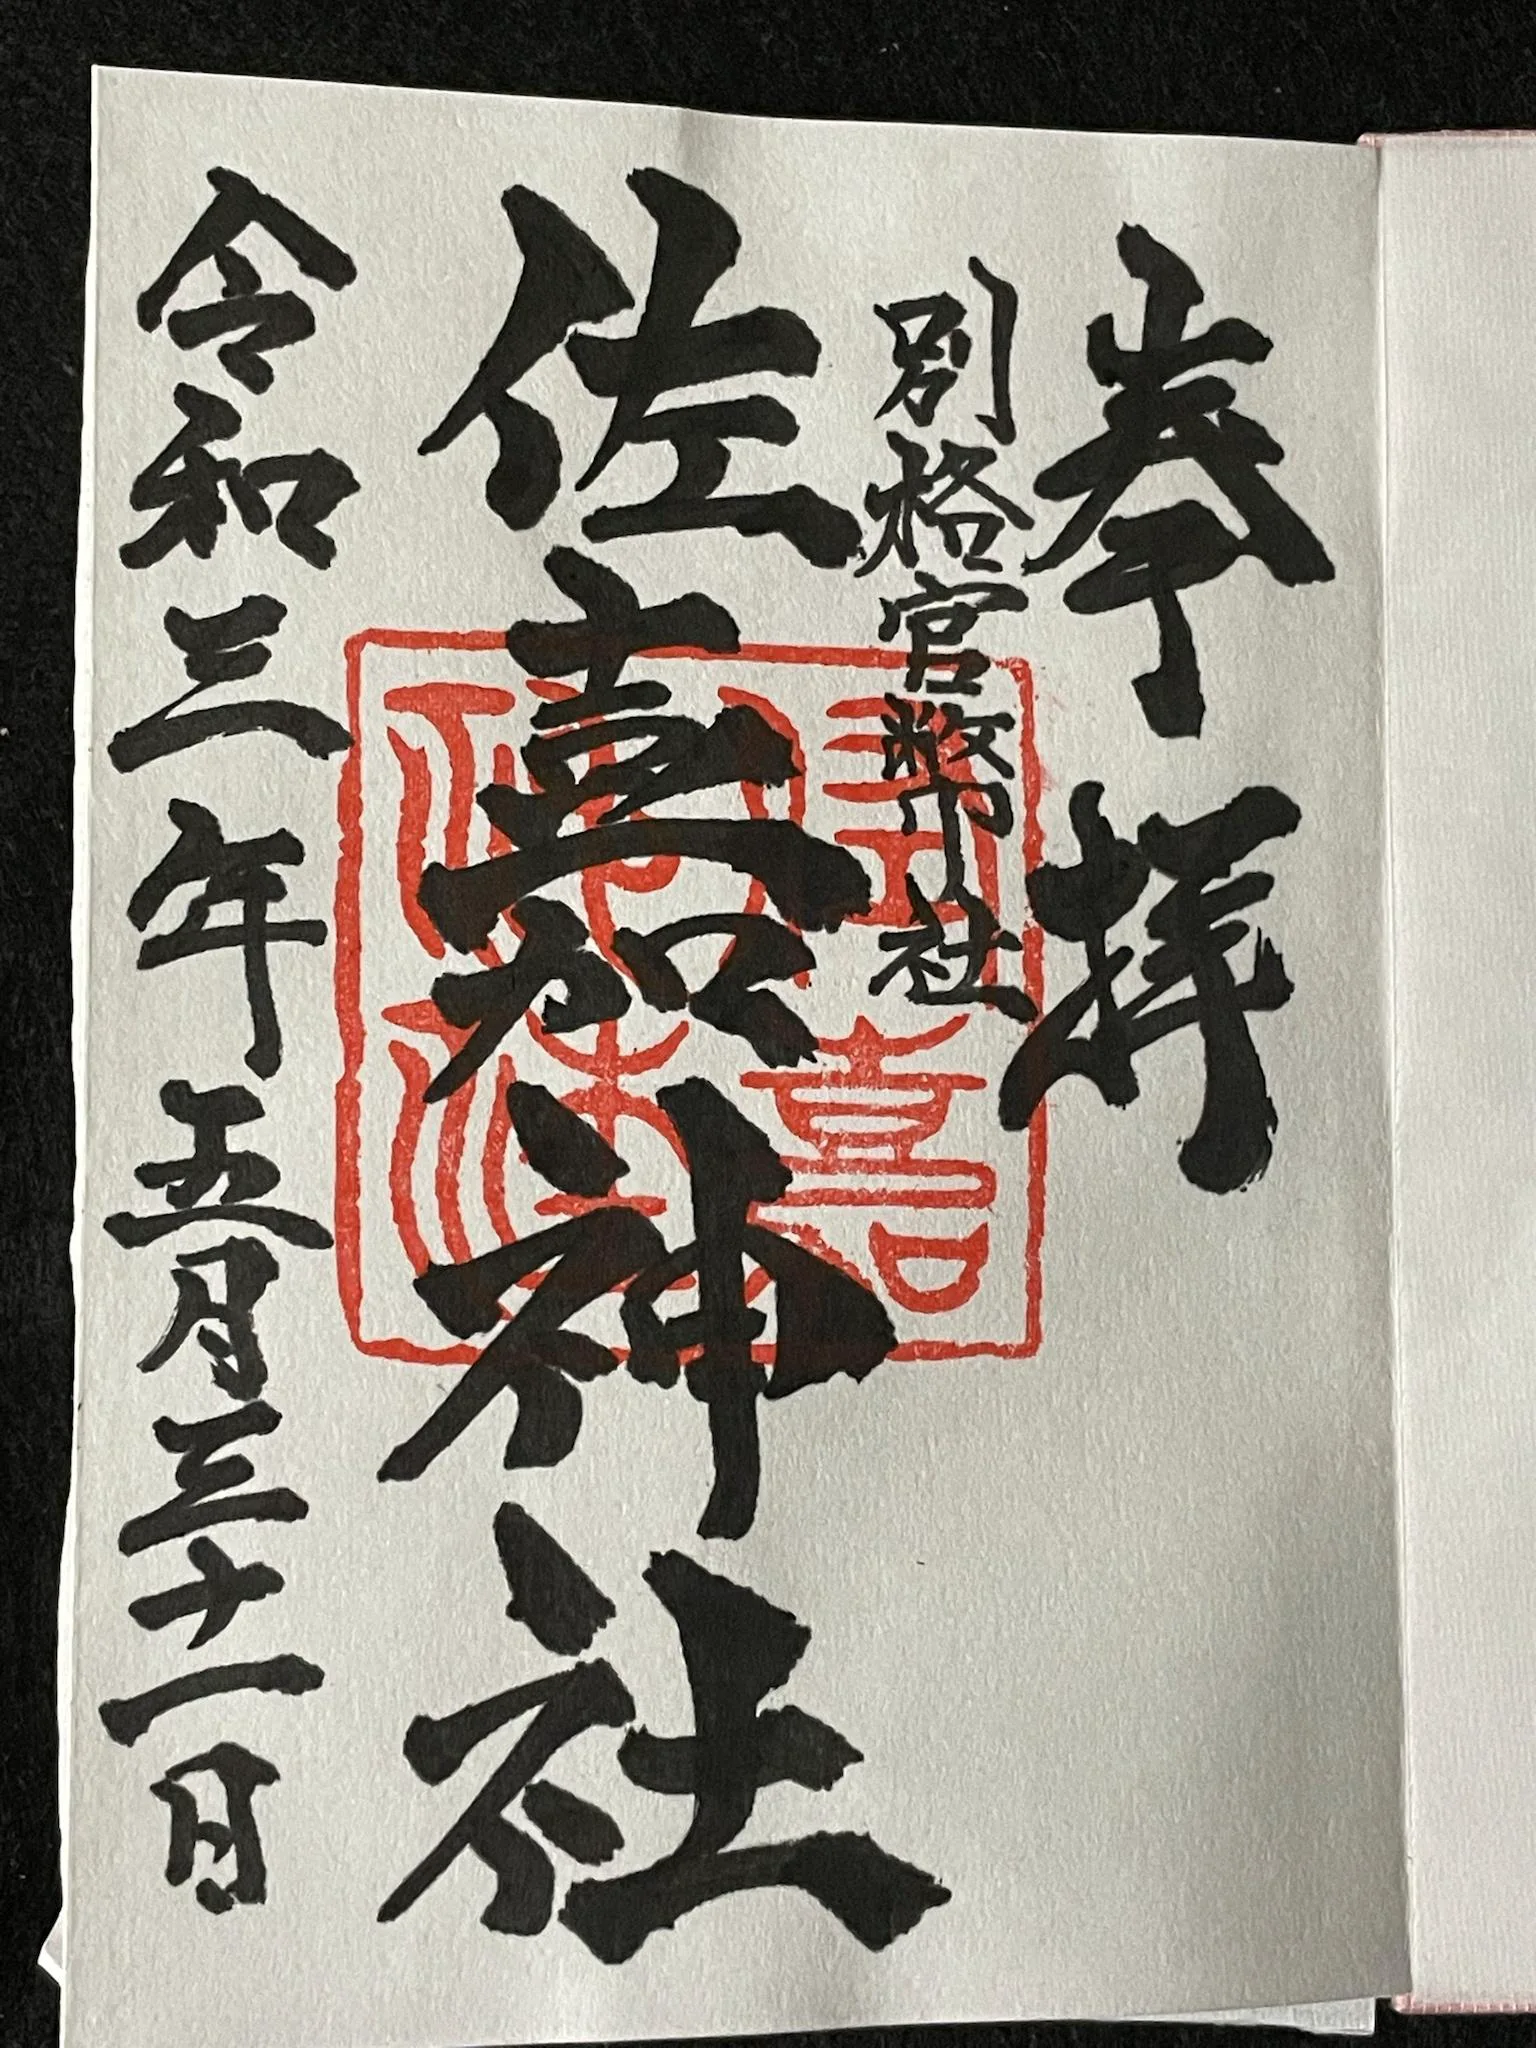 奉拝
別格官幣社
佐嘉神社
令和三年五月三十一日